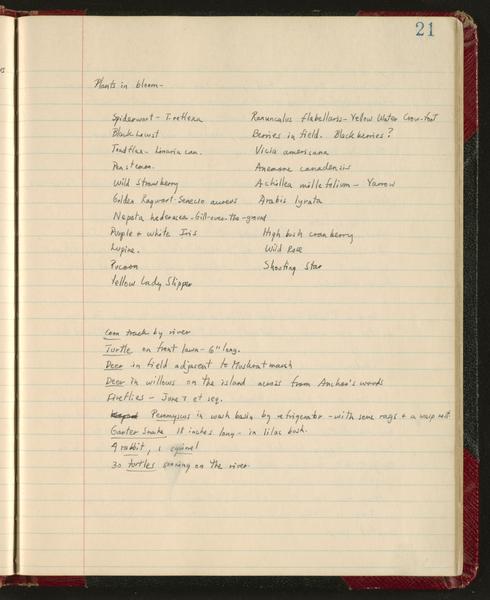 21
Plants in bloom-
Spiderwort - T. reflexa
Black Locust
Toadflax - Linaria can.
Penstemon.
Wild Strawberry
Golden Ragwort - Senecio aureus
Nepeta hederacea - Gill-over-the-ground
Purple + White Iris
Lupine.
Pucoon
Yellow Lady Slipper
Ranunculus flabellaris - Yellow Water Crow-foot
Berries in field. Blackberries?
Vicia americana
Anemone canadensis
Achillea millefolium - Yarrow
Arabis lyrata
High bush cranberry
Wild Rose
Shooting Star
Coon track by river
Turtle on front lawn - 6" long.
Deer in field adjacent to Muskrat marsh
Deer in willows on the island across from Anchor's woods
Fireflies - June 7 et seq.
Peromyscus in wash basin by refrigerator - with some rags + a wasp nest.
Garter Snake 18 inches long - in lilac bush.
A rabbit, 1 squirrel
30 turtles sunning on the river.